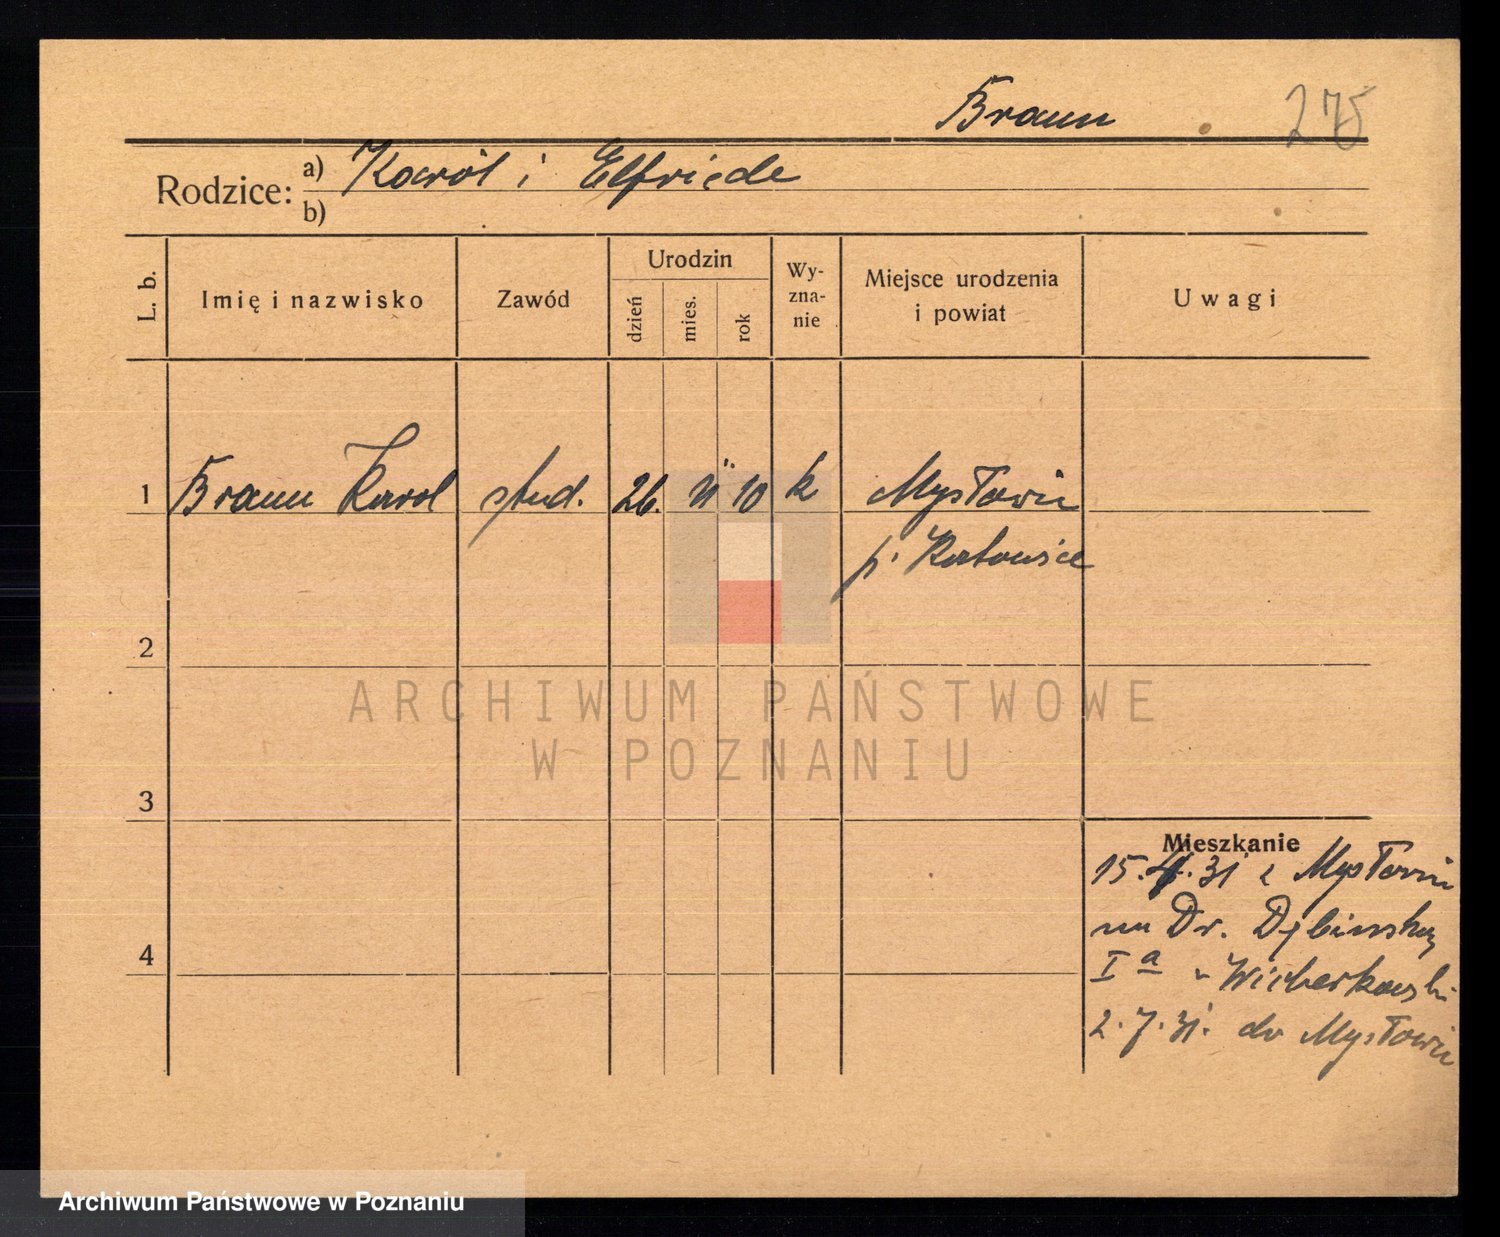 Braun 275
Rodzice: a) Karol i Elfriede
b)
L. b. Imię i nazwisko Zawód Urodzin dzień mies. rok Wyznanie Miejsce urodzenia i powiat Uwagi
1 Braun Karol stud. 26. 10 k Mysłowic
p. Katowice
2
3
4
Mieszkanie
15.4.31 z Mysłowic
na Dr. Dębińską
I a u Wicherkowski
2.7.31. do Mysłowic
ARCHIWUM PAŃSTWOWE
W POZNANIU
Archiwum Państwowe w Poznaniu